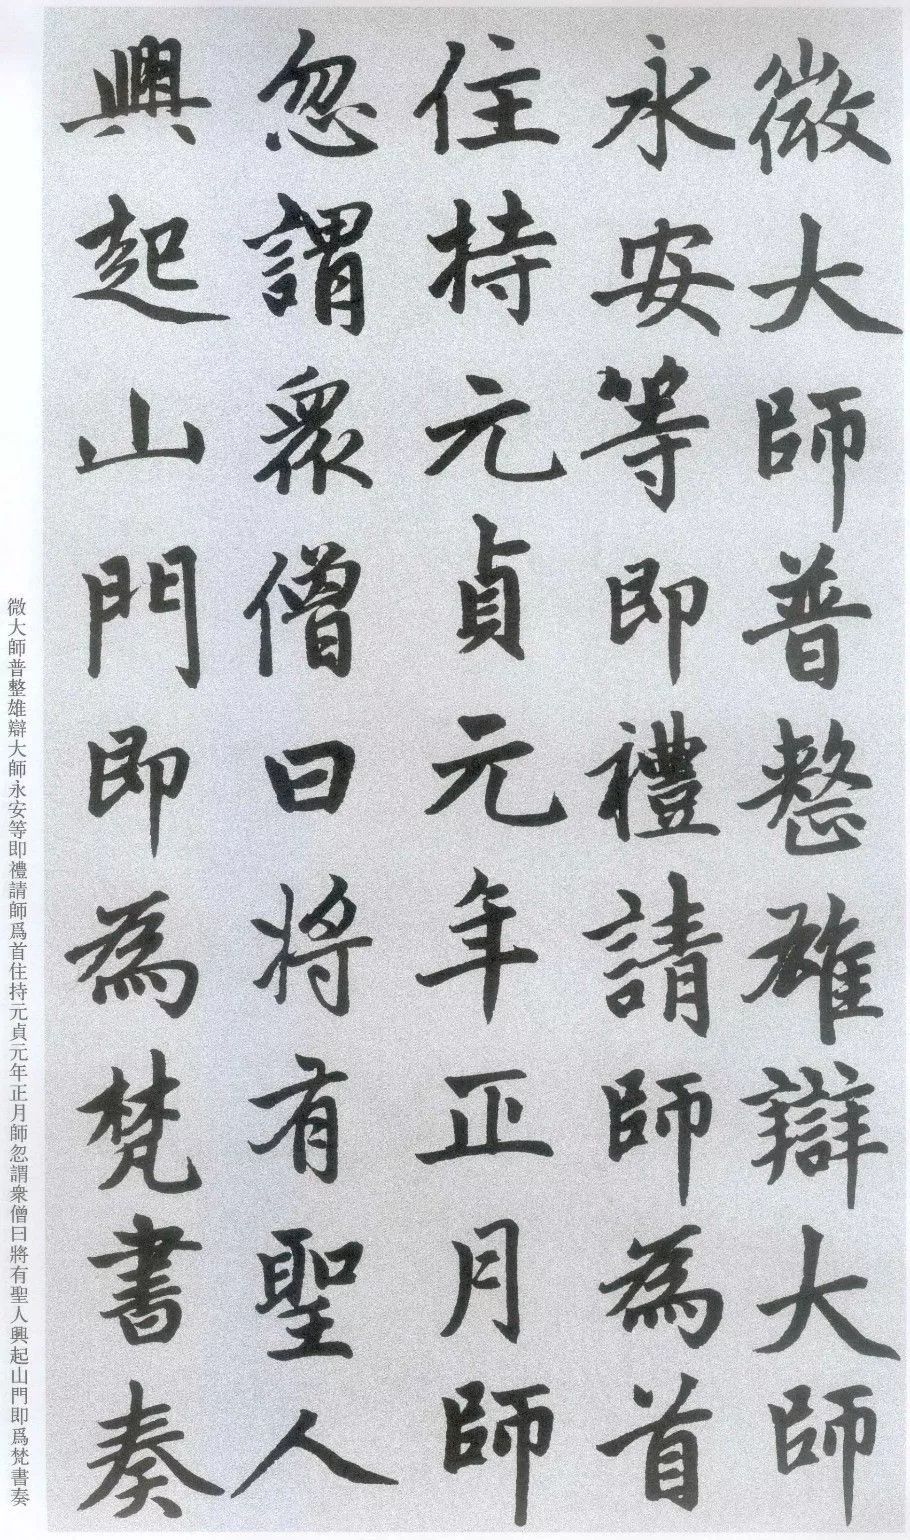 微大師普整雄辯大師
永安等即禮請師為首
住持元貞元年正月師
忽謂衆僧曰将有聖人
興起山門即為梵書奏
微大師普整雄辯大師永安等即禮請師爲首住持元貞元年正月師忽謂衆僧曰將有聖人興起山門即爲梵書奏